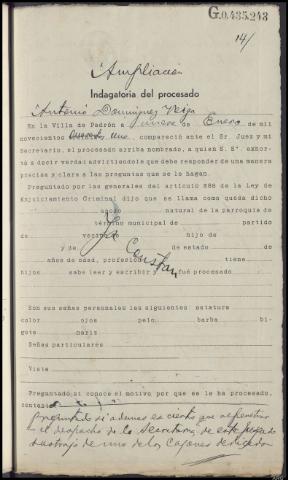 G.0.435.243
14/
Ampliacion
Indagatoria del procesado
Antonio Dominguez Veiga
En la Villa de Padrón a nueve de Enero de mil
novecientos uno, compareció ante el Sr. Juez y mi
Secretario, el procesado arriba nombrado, a quien S. Sª exhor-
tó a decir verdad advirtiendole que debe responder de una manera
precisa y clara a las preguntas que se le hagan.
Preguntado por las generales del articulo 388 de la Ley de
Enjuiciamiento Criminal dijo que se llama como queda dicho
apodo natural de la parroquia de
término municipal de partido
de vecino de hijo de
y de de estado de
años de edad, profesión tiene
hijos sabe leer y escribir y fué procesado
Ya Constan
Son sus señas personales las siguientes estatura
color ojos pelo barba bi-
gote nariz
Señas particulares
Viste
Preguntado si conoce el motivo por que se le ha procesado,
contestó
Preguntado si ademas es cierto que al penetrar
en el despacho de la Secretaria de este Juzgado
sustrajo de uno de los Cajones de